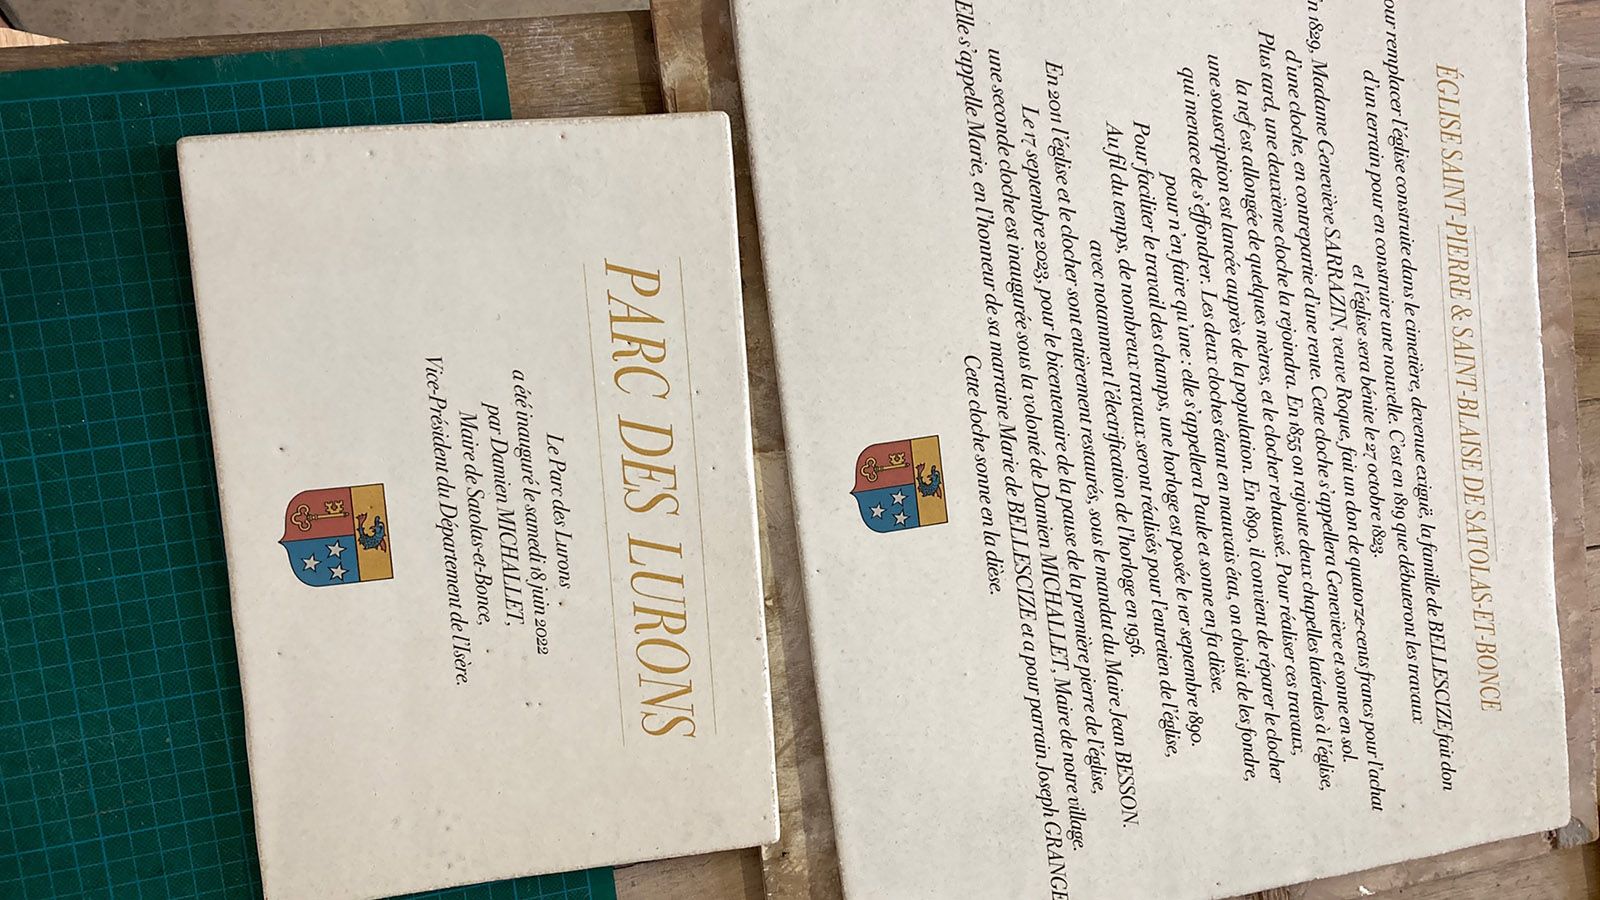 PARC DES LURONS
Le Parc des Lurons
a été inauguré le samedi 18 juin 2022
par Damien MICHALLET,
Maire de Satolas-et-Bonce,
Vice-Président du Département de l'Isère.
ÉGLISE SAINT-PIERRE & SAINT-BLAISE DE SATOLAS-ET-BONCE
remplacer l'église construite dans le cimetière, devenue exiguë, la famille de BELLESCIZE fait don
d'un terrain pour en construire une nouvelle. C'est en 1819 que débuteront les travaux
et l'église sera bénite le 27 octobre 1823.
1829, Madame Geneviève SARRAZIN, veuve Roque, fait un don de quatorze-cents francs pour l'achat
d'une cloche, en contrepartie d'une rente. Cette cloche s'appellera Geneviève et sonne en sol.
Plus tard, une deuxième cloche la rejoindra. En 1855 on rajoute deux chapelles latérales à l'église,
la nef est allongée de quelques mètres, et le clocher rehaussé. Pour réaliser ces travaux,
une souscription est lancée auprès de la population. En 1890, il convient de réparer le clocher
qui menace de s'effondrer. Les deux cloches étant en mauvais état, on choisi de les fondre,
pour n'en faire qu'une : elle s'appellera Paule et sonne en fa dièse.
Pour faciliter le travail des champs, une horloge est posée le 1er septembre 1890.
Au fil du temps, de nombreux travaux seront réalisés pour l'entretien de l'église,
avec notamment l'électrification de l'horloge en 1956.
En 2011 l'église et le clocher sont entièrement restaurés, sous le mandat du Maire Jean BESSON.
Le 17 septembre 2023, pour le bicentenaire de la pause de la première pierre de l'église,
une seconde cloche est inaugurée sous la volonté de Damien MICHALLET, Maire de notre village.
Elle s'appelle Marie, en l'honneur de sa marraine Marie de BELLESCIZE et a pour parrain Joseph GRANGE
Cette cloche sonne en la dièse.